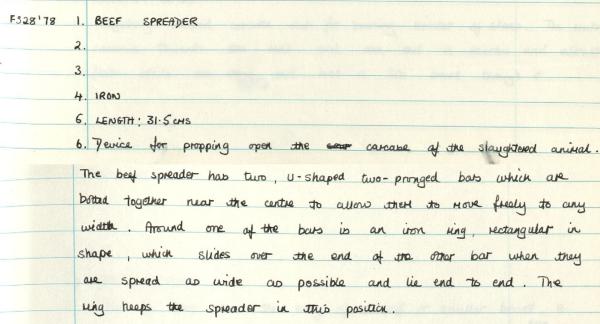 FS28'78 1. BEEF SPREADER
2.
3.
4. IRON
5. LENGTH: 31.5 CMS
6. Device for propping open the carcase of the slaughtered animal.
The beef spreader has two, U-shaped two-pronged bars which are
bolted together near the centre to allow them to move freely to any
width. Around one of the bars is an iron ring, rectangular in
shape, which slides over the end of the other bar when they
are spread as wide as possible and lie end to end. The
ring keeps the spreader in this position.